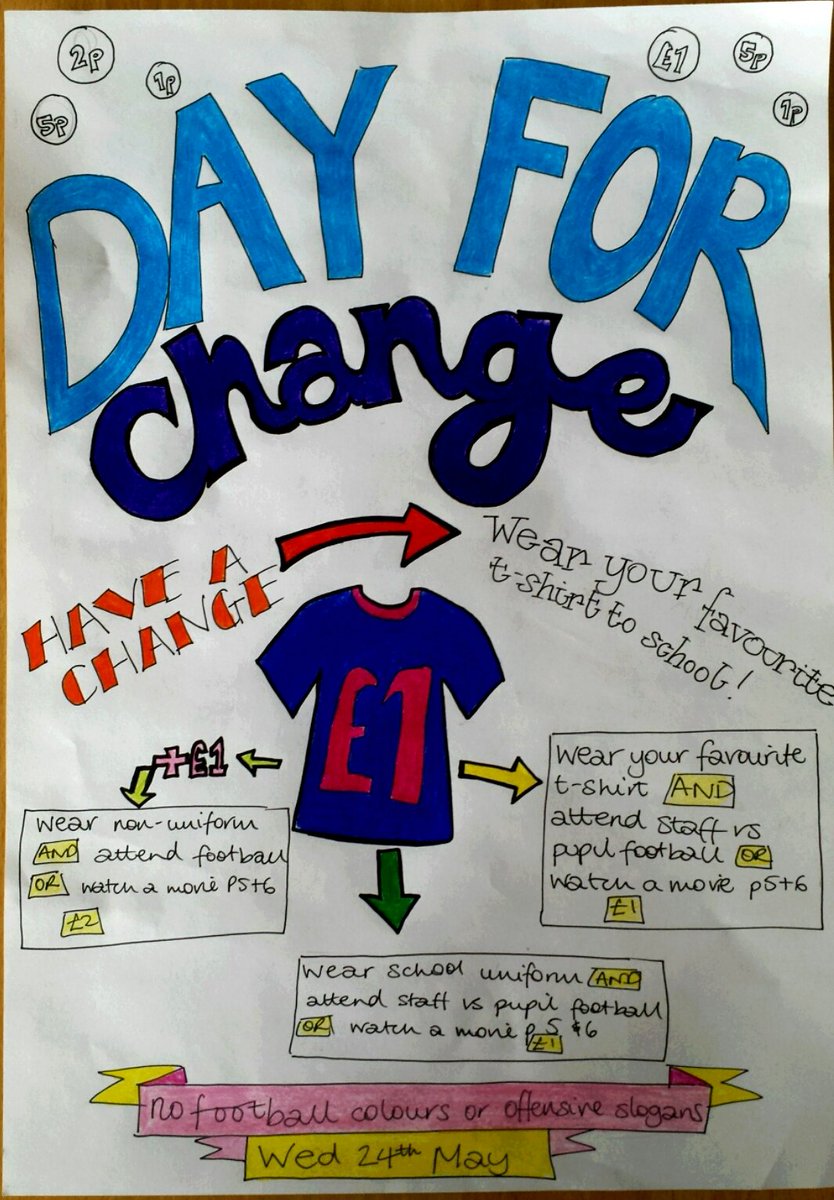 2P
1P
5P
£1
5P
1P
DAY FOR
change
HAVE A
CHANGE
Wear your favourite
t-shirt to school!
£1
+£1
Wear non-uniform
AND attend football
OR watch a movie P5+6
£2
Wear your favourite
t-shirt AND
attend staff vs
pupil football OR
watch a movie p5+6
£1
Wear school uniform AND
attend staff vs pupil football
OR watch a movie p 5 & 6
£1
no football colours or offensive slogans
Wed 24th May